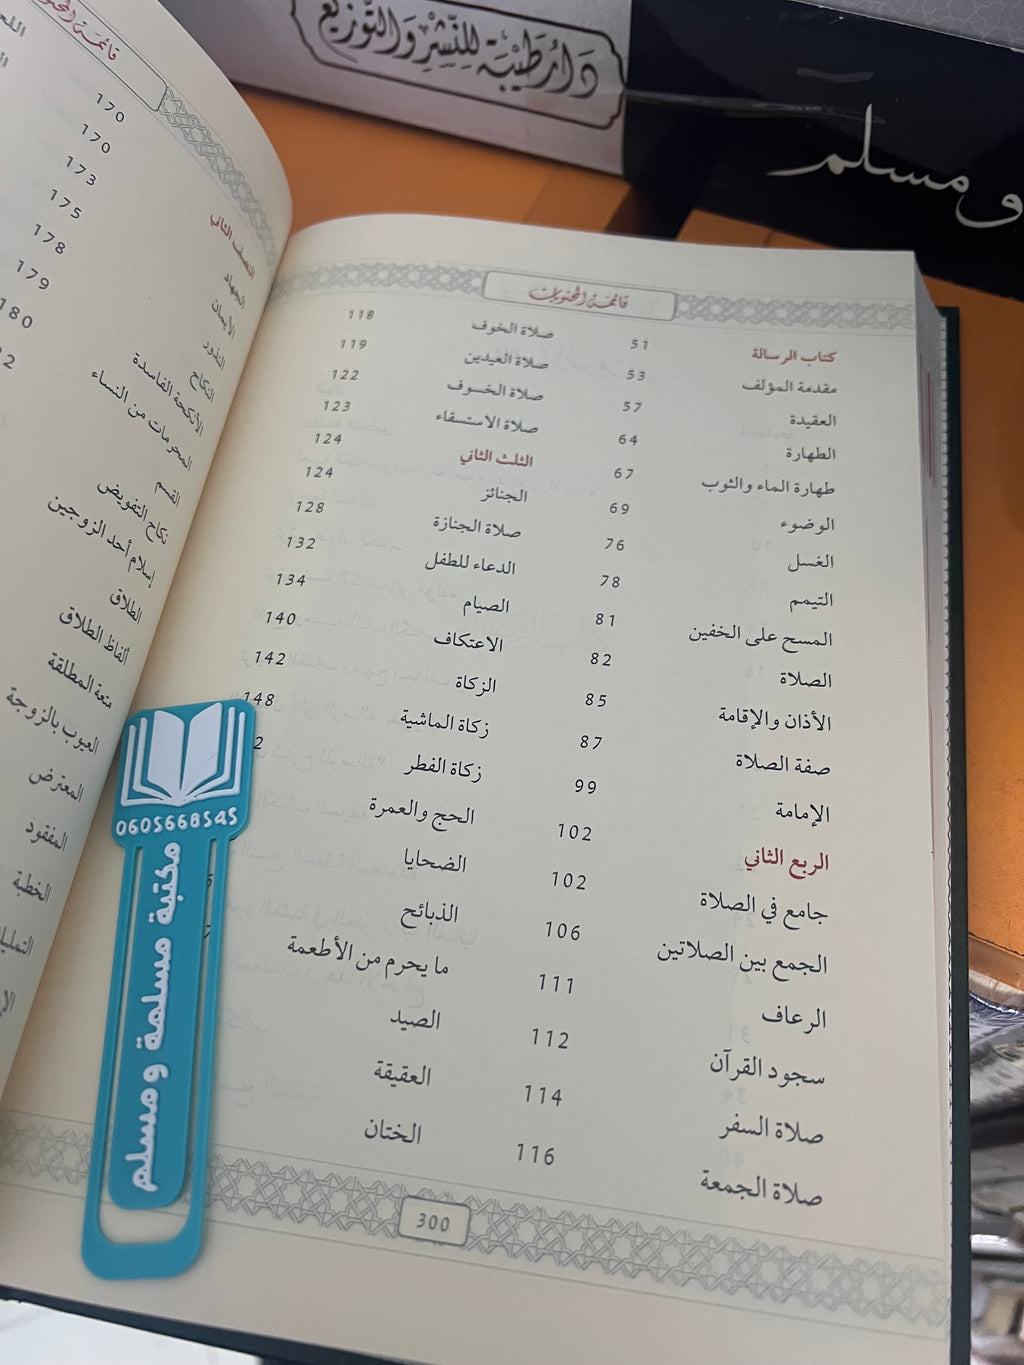 دار طيبة للنشر والتوزيع
ومسلم
قائمة المحتويات
كتاب الرسالة 51
مقدمة المؤلف 53
العقيدة 57
الطهارة 64
طهارة الماء والثوب 67
الوضوء 69
الغسل 76
التيمم 78
المسح على الخفين 81
الصلاة 82
الأذان والإقامة 85
صفة الصلاة 87
الإمامة 99
الربع الثاني 102
جامع في الصلاة 102
الجمع بين الصلاتين 106
الرعاف 111
سجود القرآن 112
صلاة السفر 114
صلاة الجمعة 116
صلاة الخوف 118
صلاة العيدين 119
صلاة الخسوف 122
صلاة الاستسقاء 123
الثلث الثاني 124
الجنائز 124
صلاة الجنازة 128
الدعاء للطفل 132
الصيام 134
الاعتكاف 140
الزكاة 142
زكاة الماشية 148
زكاة الفطر
الحج والعمرة
الضحايا
الذبائح
ما يحرم من الأطعمة
الصيد
العقيقة
الختان
300
قائمة
النصف الثاني 170
الجهاد 170
الأيمان 173
النذور 175
النكاح 178
الأنكحة الفاسدة 179
المحرمات من النساء 180
القسم
نكاح التفويض
إسلام أحد الزوجين
الطلاق
ألفاظ الطلاق
متعة المطلقة
العيوب بالزوجة
المعترض
المفقود
الخطبة
0605668545
مكتبة مسلمة ومسلم